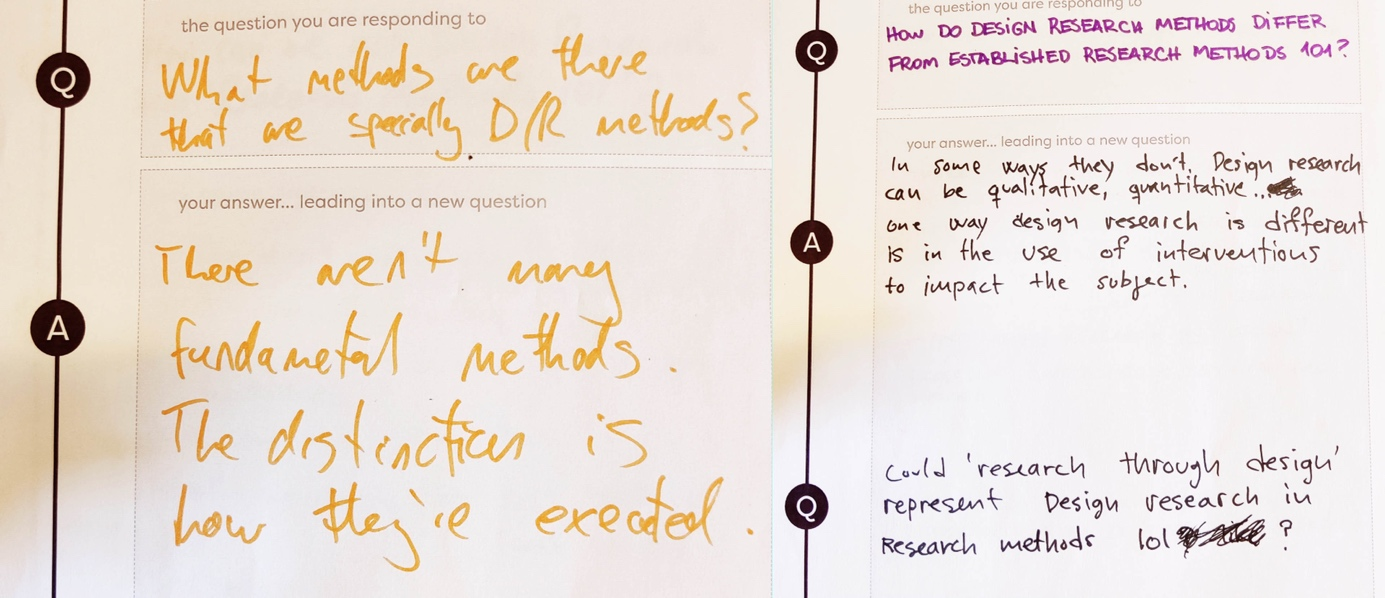 the question you are responding to
Q
What methods are there
that are specially D/R methods?
your answer... leading into a new question
A
There aren't many
fundametal methods.
The distinction is
how they're executed.
the question you are responding to
Q
HOW DO DESIGN RESEARCH METHODS DIFFER
FROM ESTABLISHED RESEARCH METHODS 101?
your answer... leading into a new question
In some ways they don't. Design research
can be qualitative, quantitative...
A
one way design research is different
is in the use of interventions
to impact the subject.
Could 'research through design'
Q
represent Design research in
Research methods 101 ?